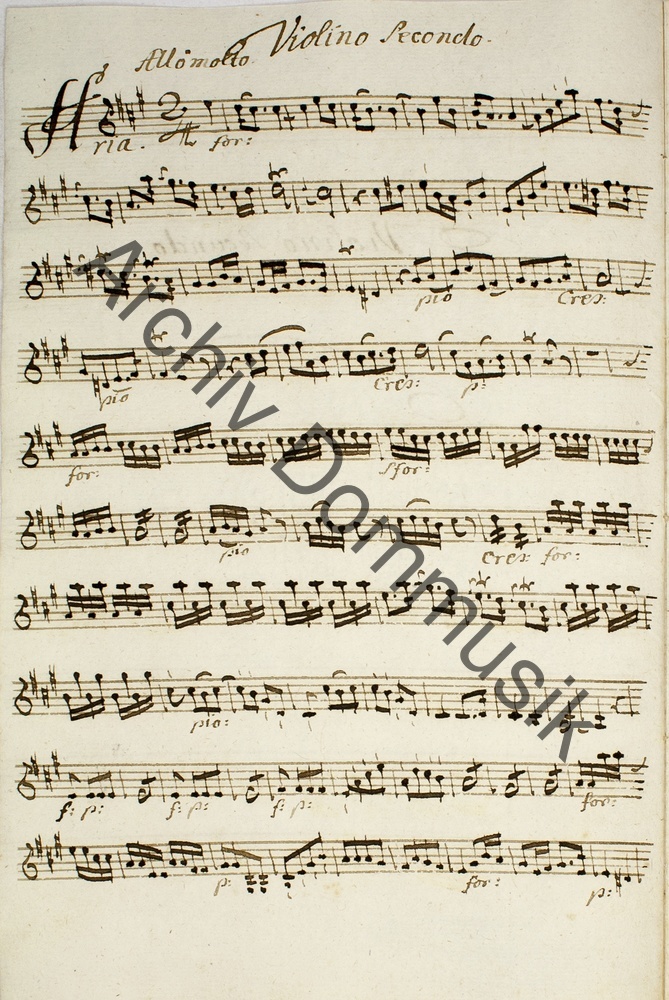 Violino Secondo.
All:o molto.
Aria. for:
pio Cres:
pio Cres: p:
for: sfor:
pio Cres: for:
pio:
f: p: f: p: f: p: for:
p: for: p:
Archiv Dommusik